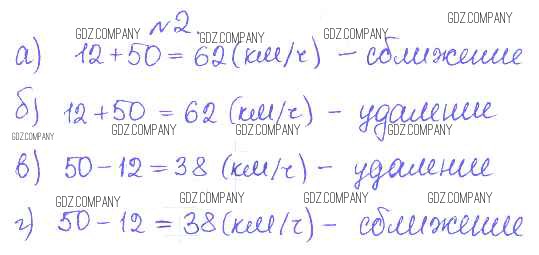 GDZ.COMPANY
GDZ.COMPANY №2 GDZ.COMPANY
а) 12 + 50 = 62 (км/ч) – сближение
б) 12 + 50 = 62 (км/ч) – удаление
GDZ.COMPANY GDZ.COMPANY GDZ.COMPANY GDZ.COMPANY
в) 50 – 12 = 38 (км/ч) – удаление
GDZ.COMPANY GDZ.COMPANY GDZ.COMPANY GDZ.COMPANY
г) 50 – 12 = 38 (км/ч) – сближение